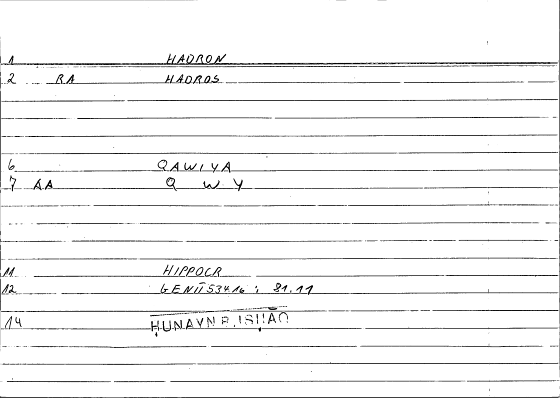 1 HADRON
2 RA HADROS
6 QAWIYA
7 AA Q W Y
11 HIPPOCR
12 GENIT 534 16 ; 81.11
14 ḤUNAYN B. ISḤĀQ